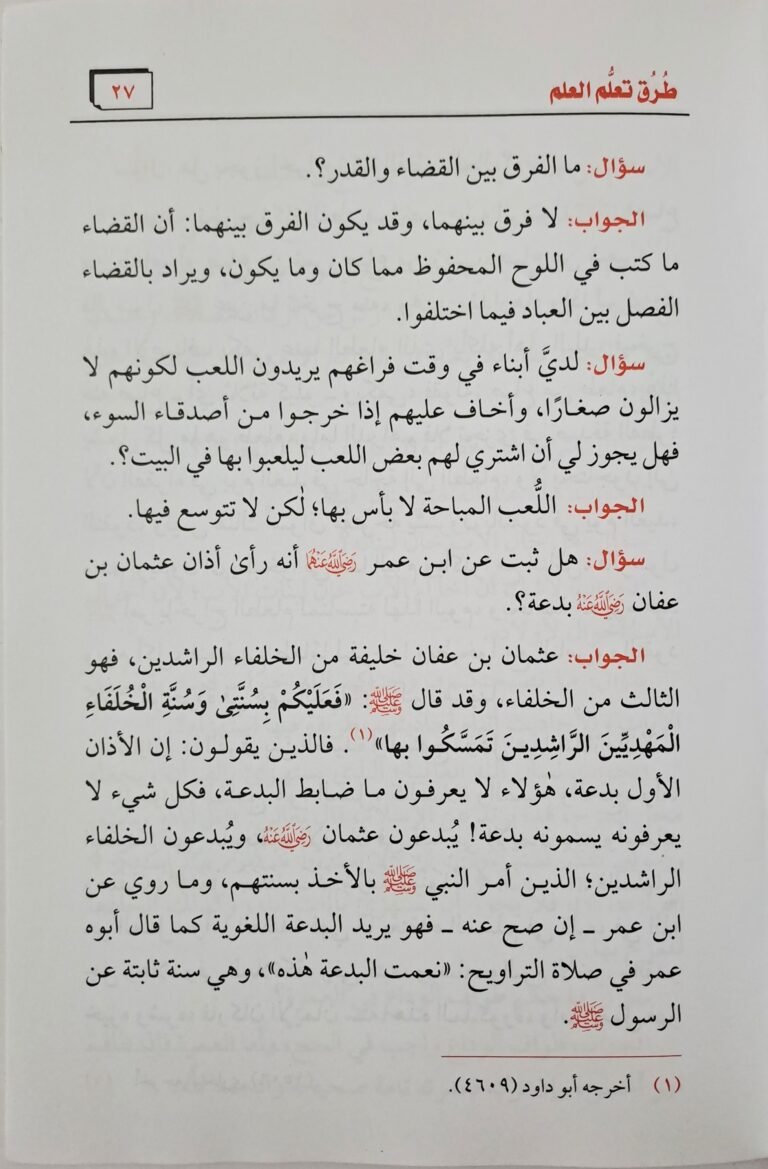 طُرُق تعلُّم العلم
٢٧
سؤال: ما الفرق بين القضاء والقدر؟.
الجواب: لا فرق بينهما، وقد يكون الفرق بينهما: أن القضاء
ما كتب في اللوح المحفوظ مما كان وما يكون، ويراد بالقضاء
الفصل بين العباد فيما اختلفوا.
سؤال: لديَّ أبناء في وقت فراغهم يريدون اللعب لكونهم لا
يزالون صغارًا، وأخاف عليهم إذا خرجوا من أصدقاء السوء،
فهل يجوز لي أن اشتري لهم بعض اللعب ليلعبوا بها في البيت؟.
الجواب: اللُّعب المباحة لا بأس بها؛ لٰكن لا تتوسع فيها.
سؤال: هل ثبت عن ابن عمر رَضِيَ اللَّهُ عَنْهُمَا أنه رأىٰ أذان عثمان بن
عفان رَضِيَ اللَّهُ عَنْهُ بدعة؟.
الجواب: عثمان بن عفان خليفة من الخلفاء الراشدين، فهو
الثالث من الخلفاء، وقد قال ﷺ: «فَعَلَيْكُمْ بِسُنَّتِىٰ وَسُنَّةِ الْخُلَفَاءِ
الْمَهْدِيِّينَ الرَّاشِدِينَ تَمَسَّكُوا بها»(١). فالذين يقولون: إن الأذان
الأول بدعة، هٰؤلاء لا يعرفون ما ضابط البدعة، فكل شيء لا
يعرفونه يسمونه بدعة! يُبدعون عثمان رَضِيَ اللَّهُ عَنْهُ، ويُبدعون الخلفاء
الراشدين؛ الذين أمر النبي ﷺ بالأخذ بسنتهم، وما روي عن
ابن عمر ـ إن صح عنه ـ فهو يريد البدعة اللغوية كما قال أبوه
عمر في صلاة التراويح: «نعمت البدعة هٰذه»، وهي سنة ثابتة عن
الرسول ﷺ.
(١) أخرجه أبو داود (٤٦٠٩).